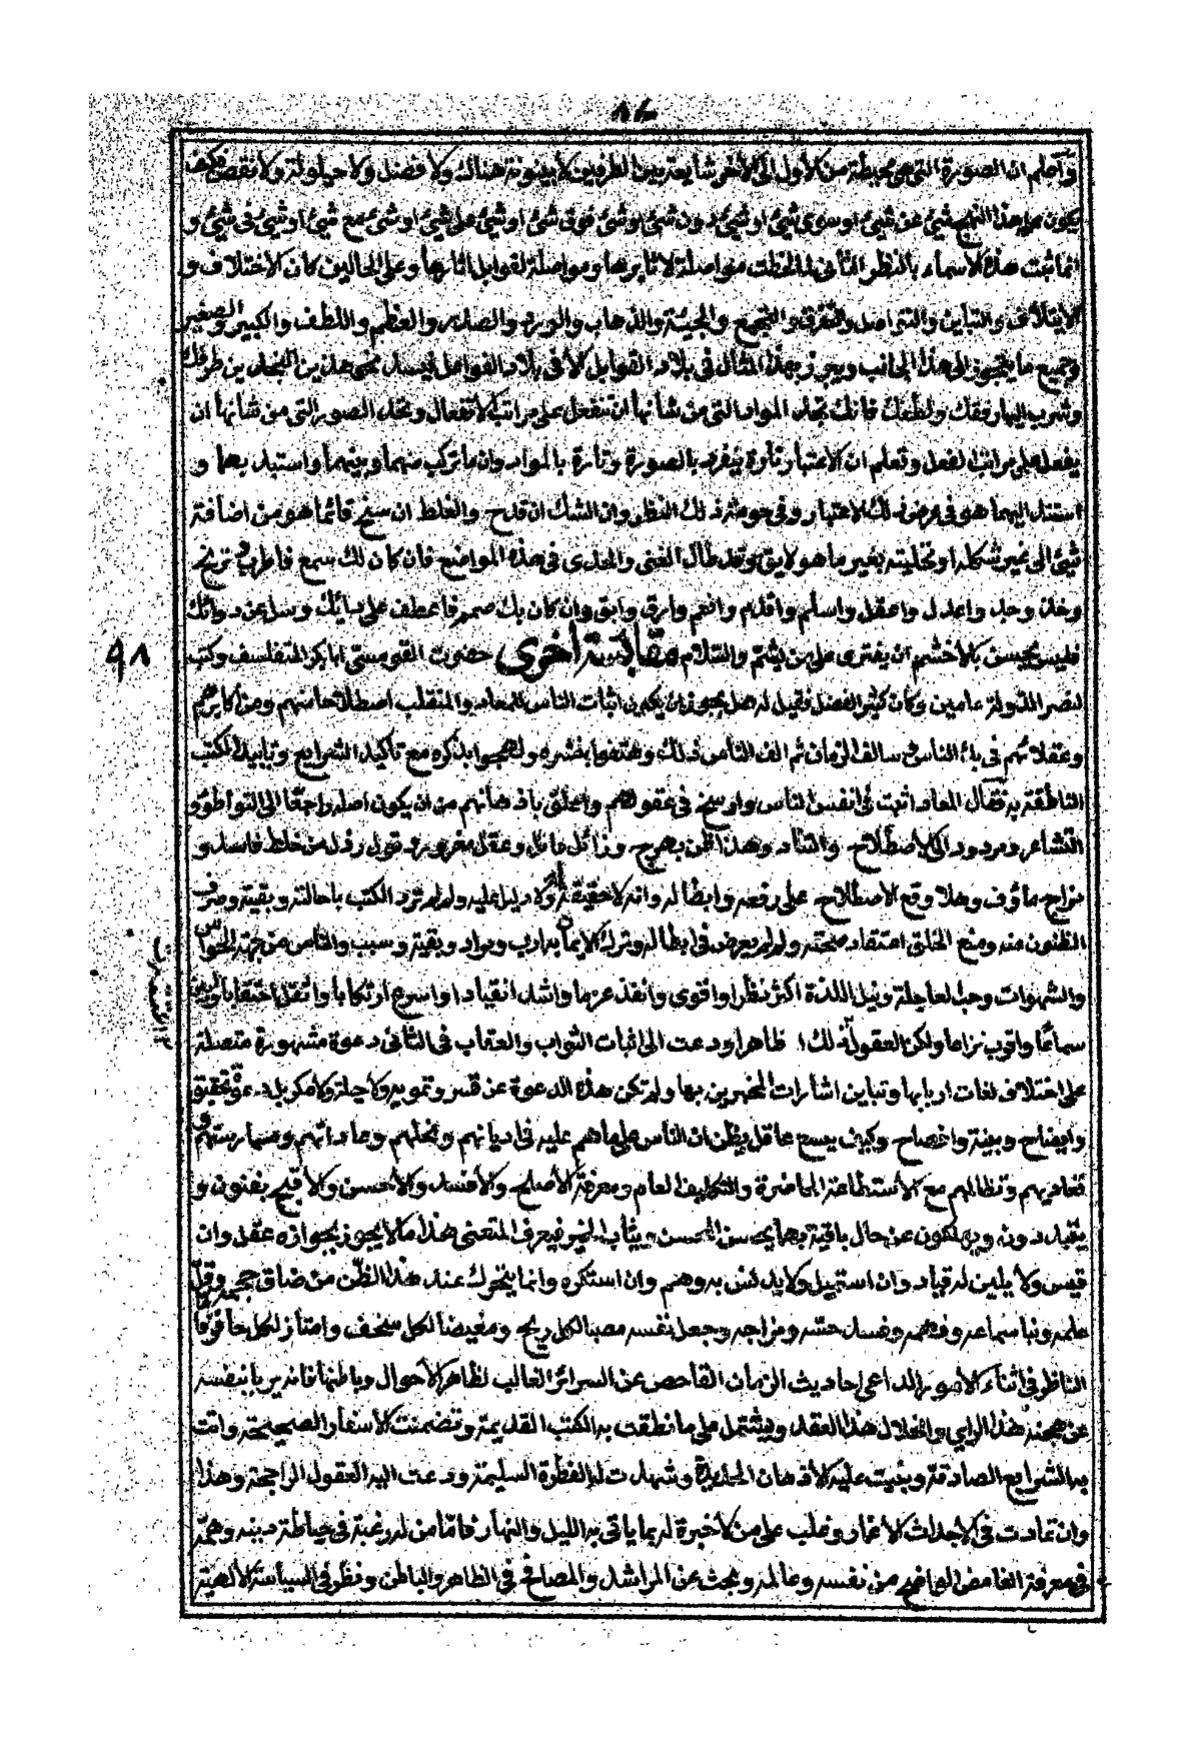 واعلم ان الصورة التى هى محيطة من الأول الى الآخر شايعة بين الطرفين لا بينونة هناك ولا فضل ولا حيلولة ولا نقص فكيف
يكون على هذا النهج شيئ عن شيئ او سوى شيئ او شيئ دون شيئ او شيئ فوق شيئ او شيئ على شيئ او شيئ مع شيئ او شيئ فى شيئ و
انما ثبت هذه الاسماء بالنظر الثانى لما لحظت مواصلة لاثايرها ومواصلة لقوابل اثارها وعلى الحالين كان الاختلاف و
الايتلاف والتباين والتواصل والتفرق والتجمع والجيئة والذهاب والورد والصدر والعظم واللطف والكبير والصغير
وجميع ما يتجوز الى هذا الجانب ويعر زجهذا المثال فى بلاد القوابل لا فى بلاد الفواعل ليسد
وشرب اليها رفقك ولطفك فانك تجد المواد التى من شانها ان تنفعل على مراتب الانفعال وتجد الصور التى من شانها ان
يفعل على مراتب الفعل وتعلم ان الاعتبار تارة ينفرد بالصورة وتارة بالمواد وان ما تركب منهما وبينهما واستبد بهما و
استند اليهما هو فى عرض ذلك الاعتبار وفى حومة ذلك النظر وان الشك ان قدح والغلط ان سنخ قائما هو من اضافة
شيئ الى غير شكله او تحليته بغير ما هو لايق وقد طال الغنى والحدى فى هذه المواضع فان كان لك سمع فاطرب وترنح
وخذ وجد واعدل واعقل واسلم واقدم وانعم وارق وابق وان كان بك صمم فاعطف على بابك وسل عن دوائك
فليس يحسن بالاخشم ان يفترى على من ليشم والسلام مقابسة اخرى حضرت القومسى ابا بكر المتفلسف وكتب
لنصر الدولة عامين وكان كثير الفضل فقيل له هل يجوز ان يكون اثبات الناس للمعاد والمنقلب اصطلاحا منهم ومن اكابرهم
وعقلائهم فى بدء الناس وسالف الزمان ثم الف الناس ذلك وهتفوا بنشره ولهجوا بذكره مع تأكيد الشرايع وتاييد الكتب
الناطقة به فقال المعاد اثبت فى انفس الناس وارسخ فى عقولهم واعلق باذهانهم من ان يكون اصله راجعا الى التواطؤ و
التشاعر ومردود الى الاصطلاح والتناد وهذا ظن بهرج وزائل مائل وعقل مغرور وقول رذل من خلط فاسد و
مزاج مأوف وهلا وقع الاصطلاح على رفعه وابطاله وانه لا حقيقة له ولا دليل عليه ولم لم ترد الكتب باحالته وبقيته وصرف
الظنون عنه ومنع الخلق اعتقاد صحته ولم لم يعرض فى ابطاله وترك الايمان به ارب وبواد وبقية وسبب والناس من جهة الحواس
والشهوات وحب العاجلة ونيل اللذة اكثر نظرا واقوى وانفذ عزما واشد انقيادا واسرع ارتكابا واثقل اختقابا والين
سماعا واقرب نزاعا ولكن العقول ذلك ظاهرا ودعت الى اثبات الثواب والعقاب فى الثانى دعوة مشهورة متصلة
على اختلاف لغات اربابها وتباين اشارات المخبرين بها ولم تكن هذه الدعوة عن قسر وتمويه ولا حيلة ولا مكر بل دعوة تحقيق
وايضاح وبينة وافصاح وكيف يسع عاقل يظن ان الناس على ما هم عليه فى اديانهم ونحلهم وعاداتهم وممارستهم و
تعاديهم وتظالمهم مع الاستطاعة الحاضرة والتكليف العام ومعرفة الأصلح والأفسد والأحسن والأقبح يفنون و
يتبددون ويهلكون عن حال باقية بها يحسن المحسن ويثاب الخير فيعرف المتعنى هذا ما لا يجوز بجوازه عقل وان
قيس ولا يلين له قياد وان استميل ولا يدنس به وهم وان استكره وانما يتحرك عند هذا الظن من ضاق حجره وقل
علمه ونبا سماعه وفهمه وفسد حسه ومزاجه وجعل نفسه مصبا لكل ريح ومغيضا لكل سخف وامتاز لكل خاف
الناظر فى اثناء الامور الداعى احاديث الزمان الفاحص عن السرائر الغالب لظاهر الأحوال وباطنها فانه يربأ بنفسه
عن هجنة هذا الرأى وانحلال هذا العقد ويشتمل على ما نطقت به الكتب القديمة وتضمنت الاسفار الصحيحة واتت
به الشرايع الصادقة وبنيت عليه الأذهان الجديدة وشهدت له الفطرة السليمة ودعت اليه العقول الراجحة وهذا
وان تمادت فى الاجداث الاعمار وغلب على من لا خبرة له بما ياتى به الليل والنهار فاما من له رغبة فى حياطة دينه وهمة
فى معرفة الغامض الواضح من نفسه وعالمه وبحث عن المراشد والمصالح فى الظاهر والباطن ونظر فى السياسة الالهية
٩٨